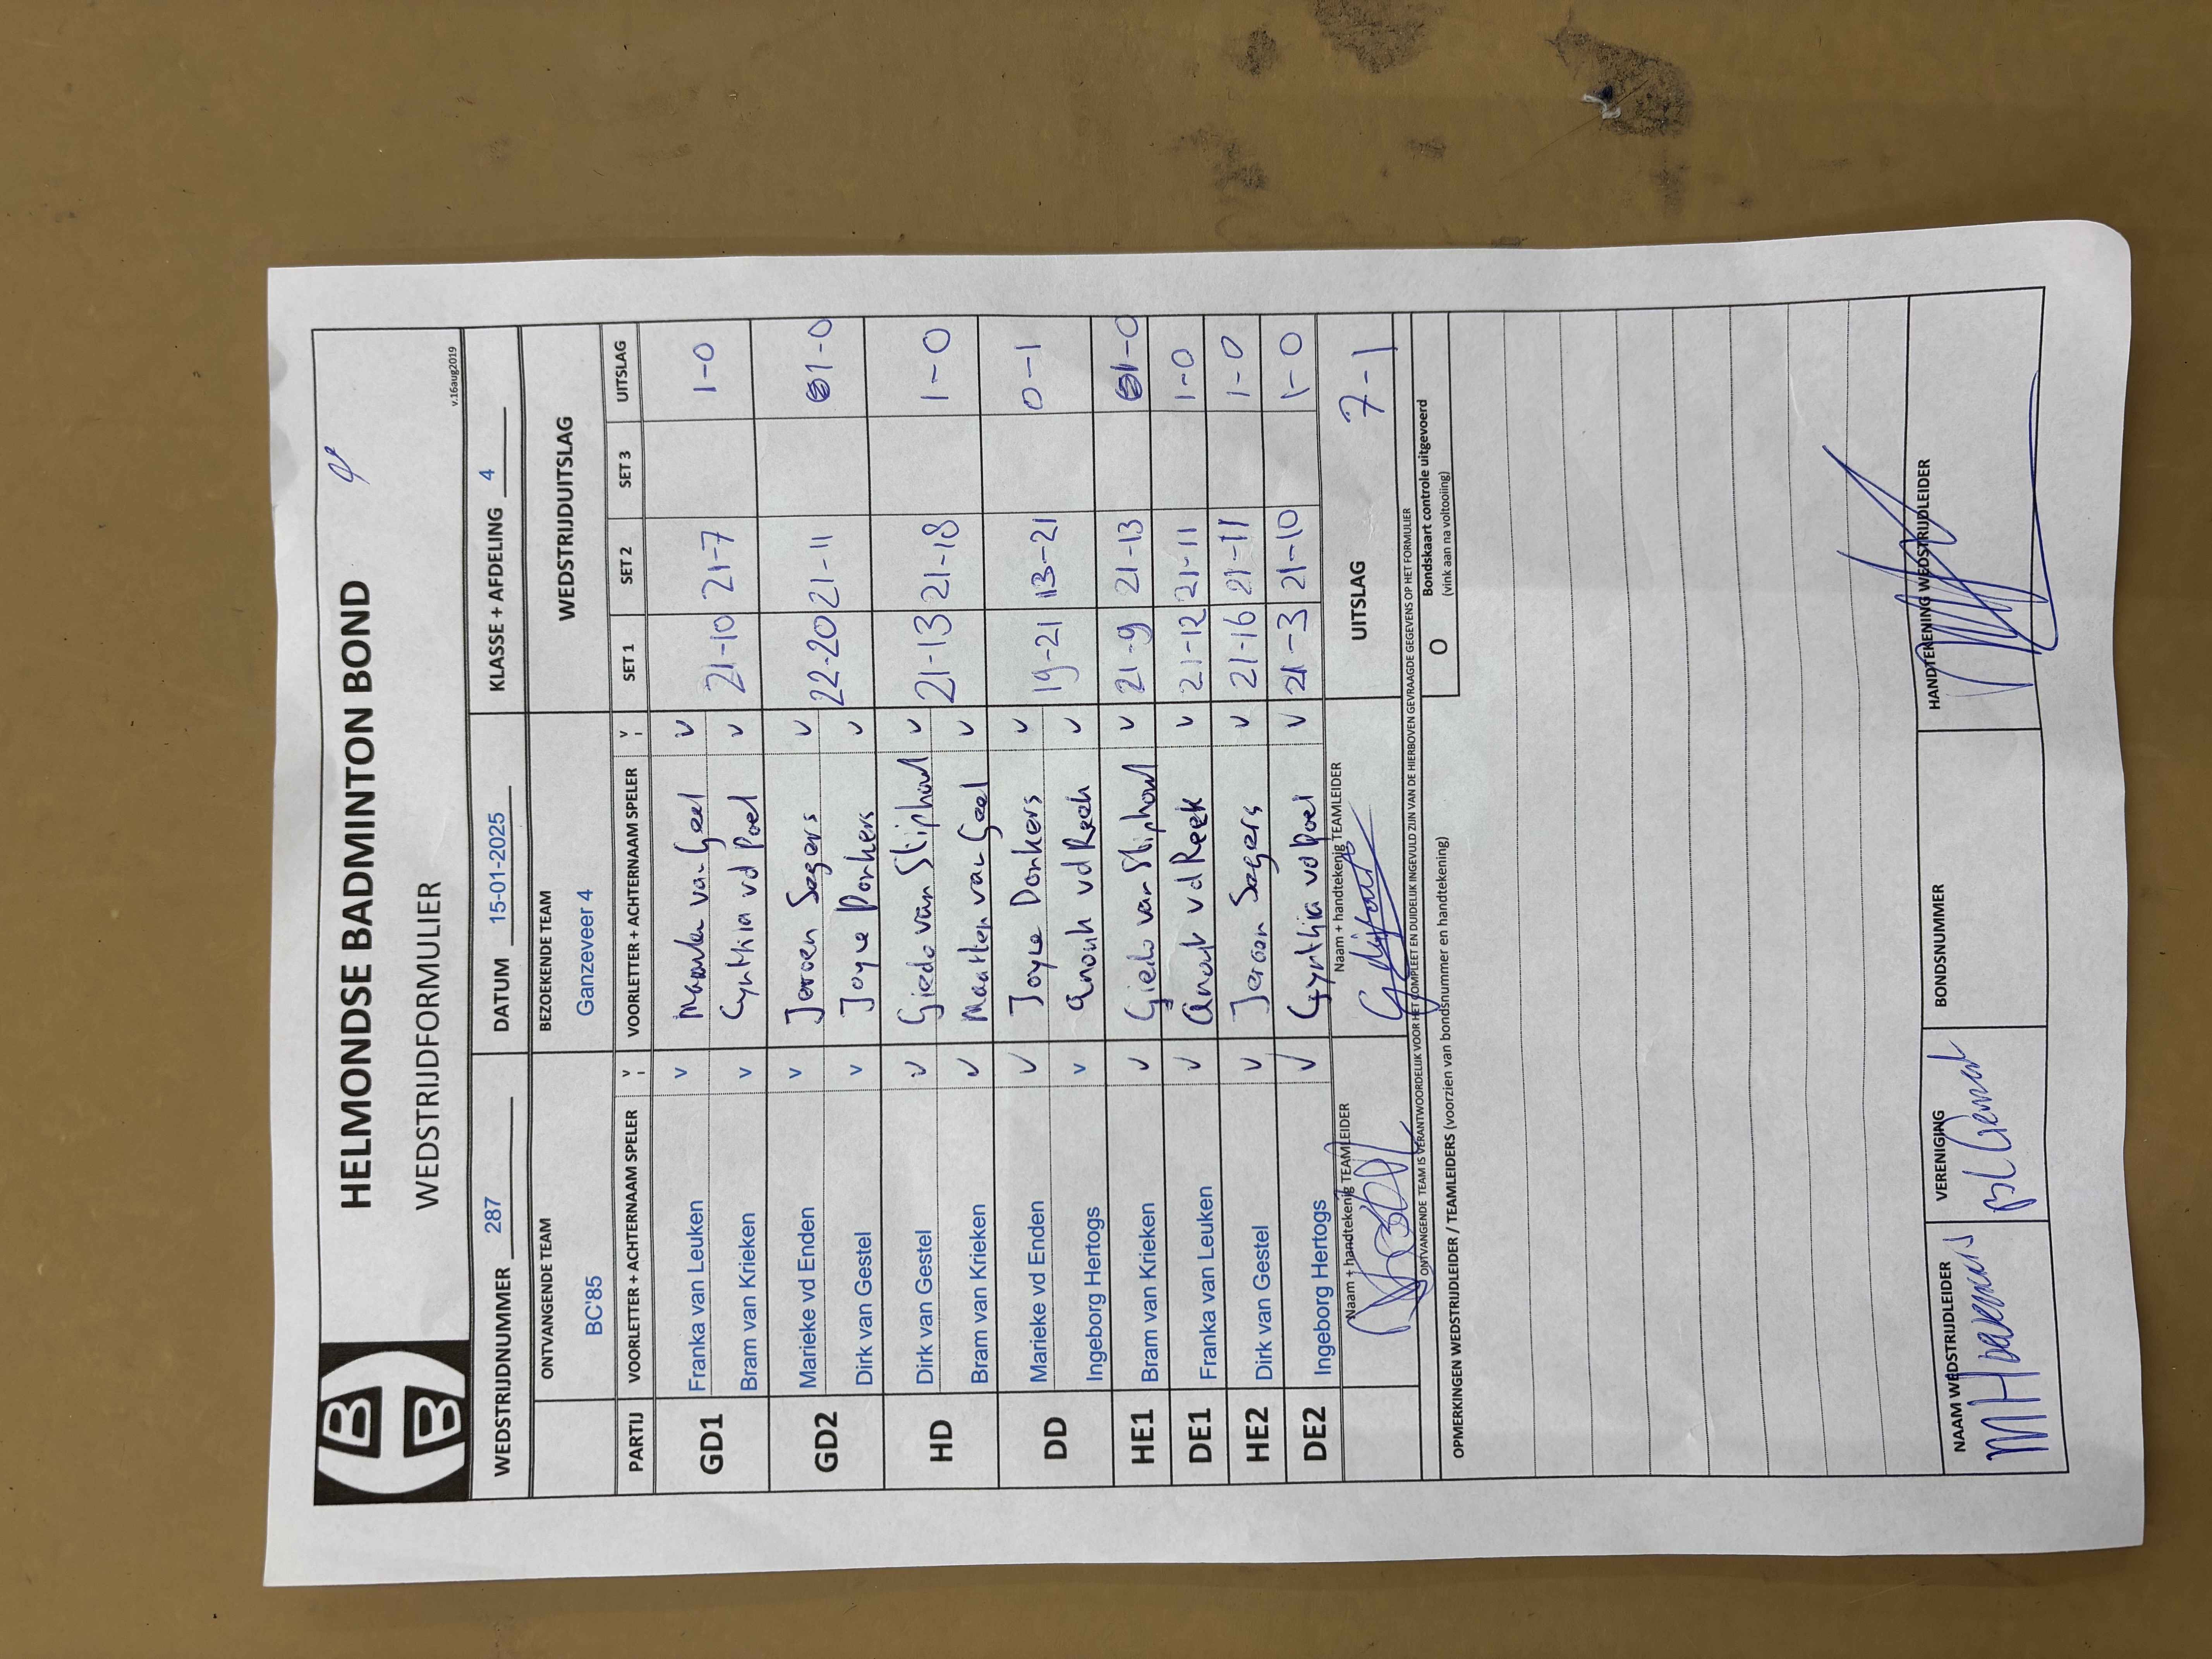 HELMONDSE BADMINTON BOND
WEDSTRIJDFORMULIER
v.16aug2019
WEDSTRIJDNUMMER 287 DATUM 15-01-2025 KLASSE + AFDELING 4
ONTVANGENDE TEAM BEZOEKENDE TEAM WEDSTRIJDUITSLAG
BC'85 Ganzeveer 4
PARTIJ VOORLETTER + ACHTERNAAM SPELER V VOORLETTER + ACHTERNAAM SPELER V SET 1 SET 2 SET 3 UITSLAG
GD1 Franka van Leuken v Maarten van Geel v 21-10 21-7 1-0
Bram van Krieken v Cynthia vd Poel v
GD2 Marieke vd Enden v Jeroen Segers v 22-20 21-11 1-0
Dirk van Gestel v Joyce Donkers v
HD Dirk van Gestel v Giedo van Sliphout v 21-13 21-18 1-0
Bram van Krieken v Maarten van Geel v
DD Marieke vd Enden v Joyce Donkers v 19-21 13-21 0-1
Ingeborg Hertogs v Anouk vd Reek v
HE1 Bram van Krieken v Giedo van Sliphout v 21-9 21-13 1-0
DE1 Franka van Leuken v Anouk vd Reek v 21-12 21-11 1-0
HE2 Dirk van Gestel v Jeroen Segers v 21-16 21-11 1-0
DE2 Ingeborg Hertogs v Cynthia vd Poel v 21-3 21-10 1-0
Naam + handtekenig TEAMLEIDER Naam + handtekenig TEAMLEIDER UITSLAG 7-1
ONTVANGENDE TEAM IS VERANTWOORDELIJK VOOR HET COMPLEET EN DUIDELIJK INGEVULD ZIJN VAN DE HIERBOVEN GEVRAAGDE GEGEVENS OP HET FORMULIER
O Bondskaart controle uitgevoerd
(vink aan na voltooiing)
OPMERKINGEN WEDSTRIJDLEIDER / TEAMLEIDERS (voorzien van bondsnummer en handtekening)
NAAM WEDSTRIJDLEIDER VERENIGING BONDSNUMMER HANDTEKENING WEDSTRIJDLEIDER